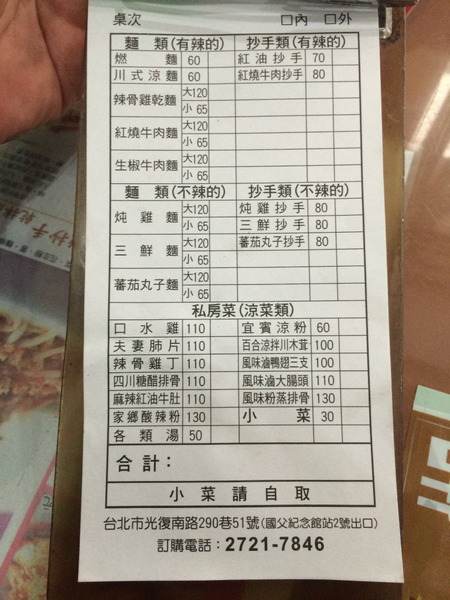 桌次 □內 □外
麵 類(有辣的) 抄手類(有辣的)
燃 麵 60 紅油抄手 70
川式涼麵 60 紅燒牛肉抄手 80
辣骨雞乾麵 大120 小 65
紅燒牛肉麵 大120 小 65
生椒牛肉麵 大120 小 65
麵 類(不辣的) 抄手類(不辣的)
炖雞麵 大120 小 65 炖雞抄手 80
三鮮抄手 80
三鮮麵 大120 小 65 蕃茄丸子抄手 80
蕃茄丸子麵 大120 小 65
私房菜(涼菜類)
口水雞 110 宜賓涼粉 60
夫妻肺片 110 百合涼拌川木茸 100
辣骨雞丁 110 風味滷鴨翅三支 100
四川糖醋排骨 110 風味滷大腸頭 110
麻辣紅油牛肚 110 風味粉蒸排骨 130
家鄉酸辣粉 130 小 菜 30
各類湯 50
合計：
小菜請自取
台北市光復南路290巷51號(國父紀念館站2號出口)
訂購電話：2721-7846